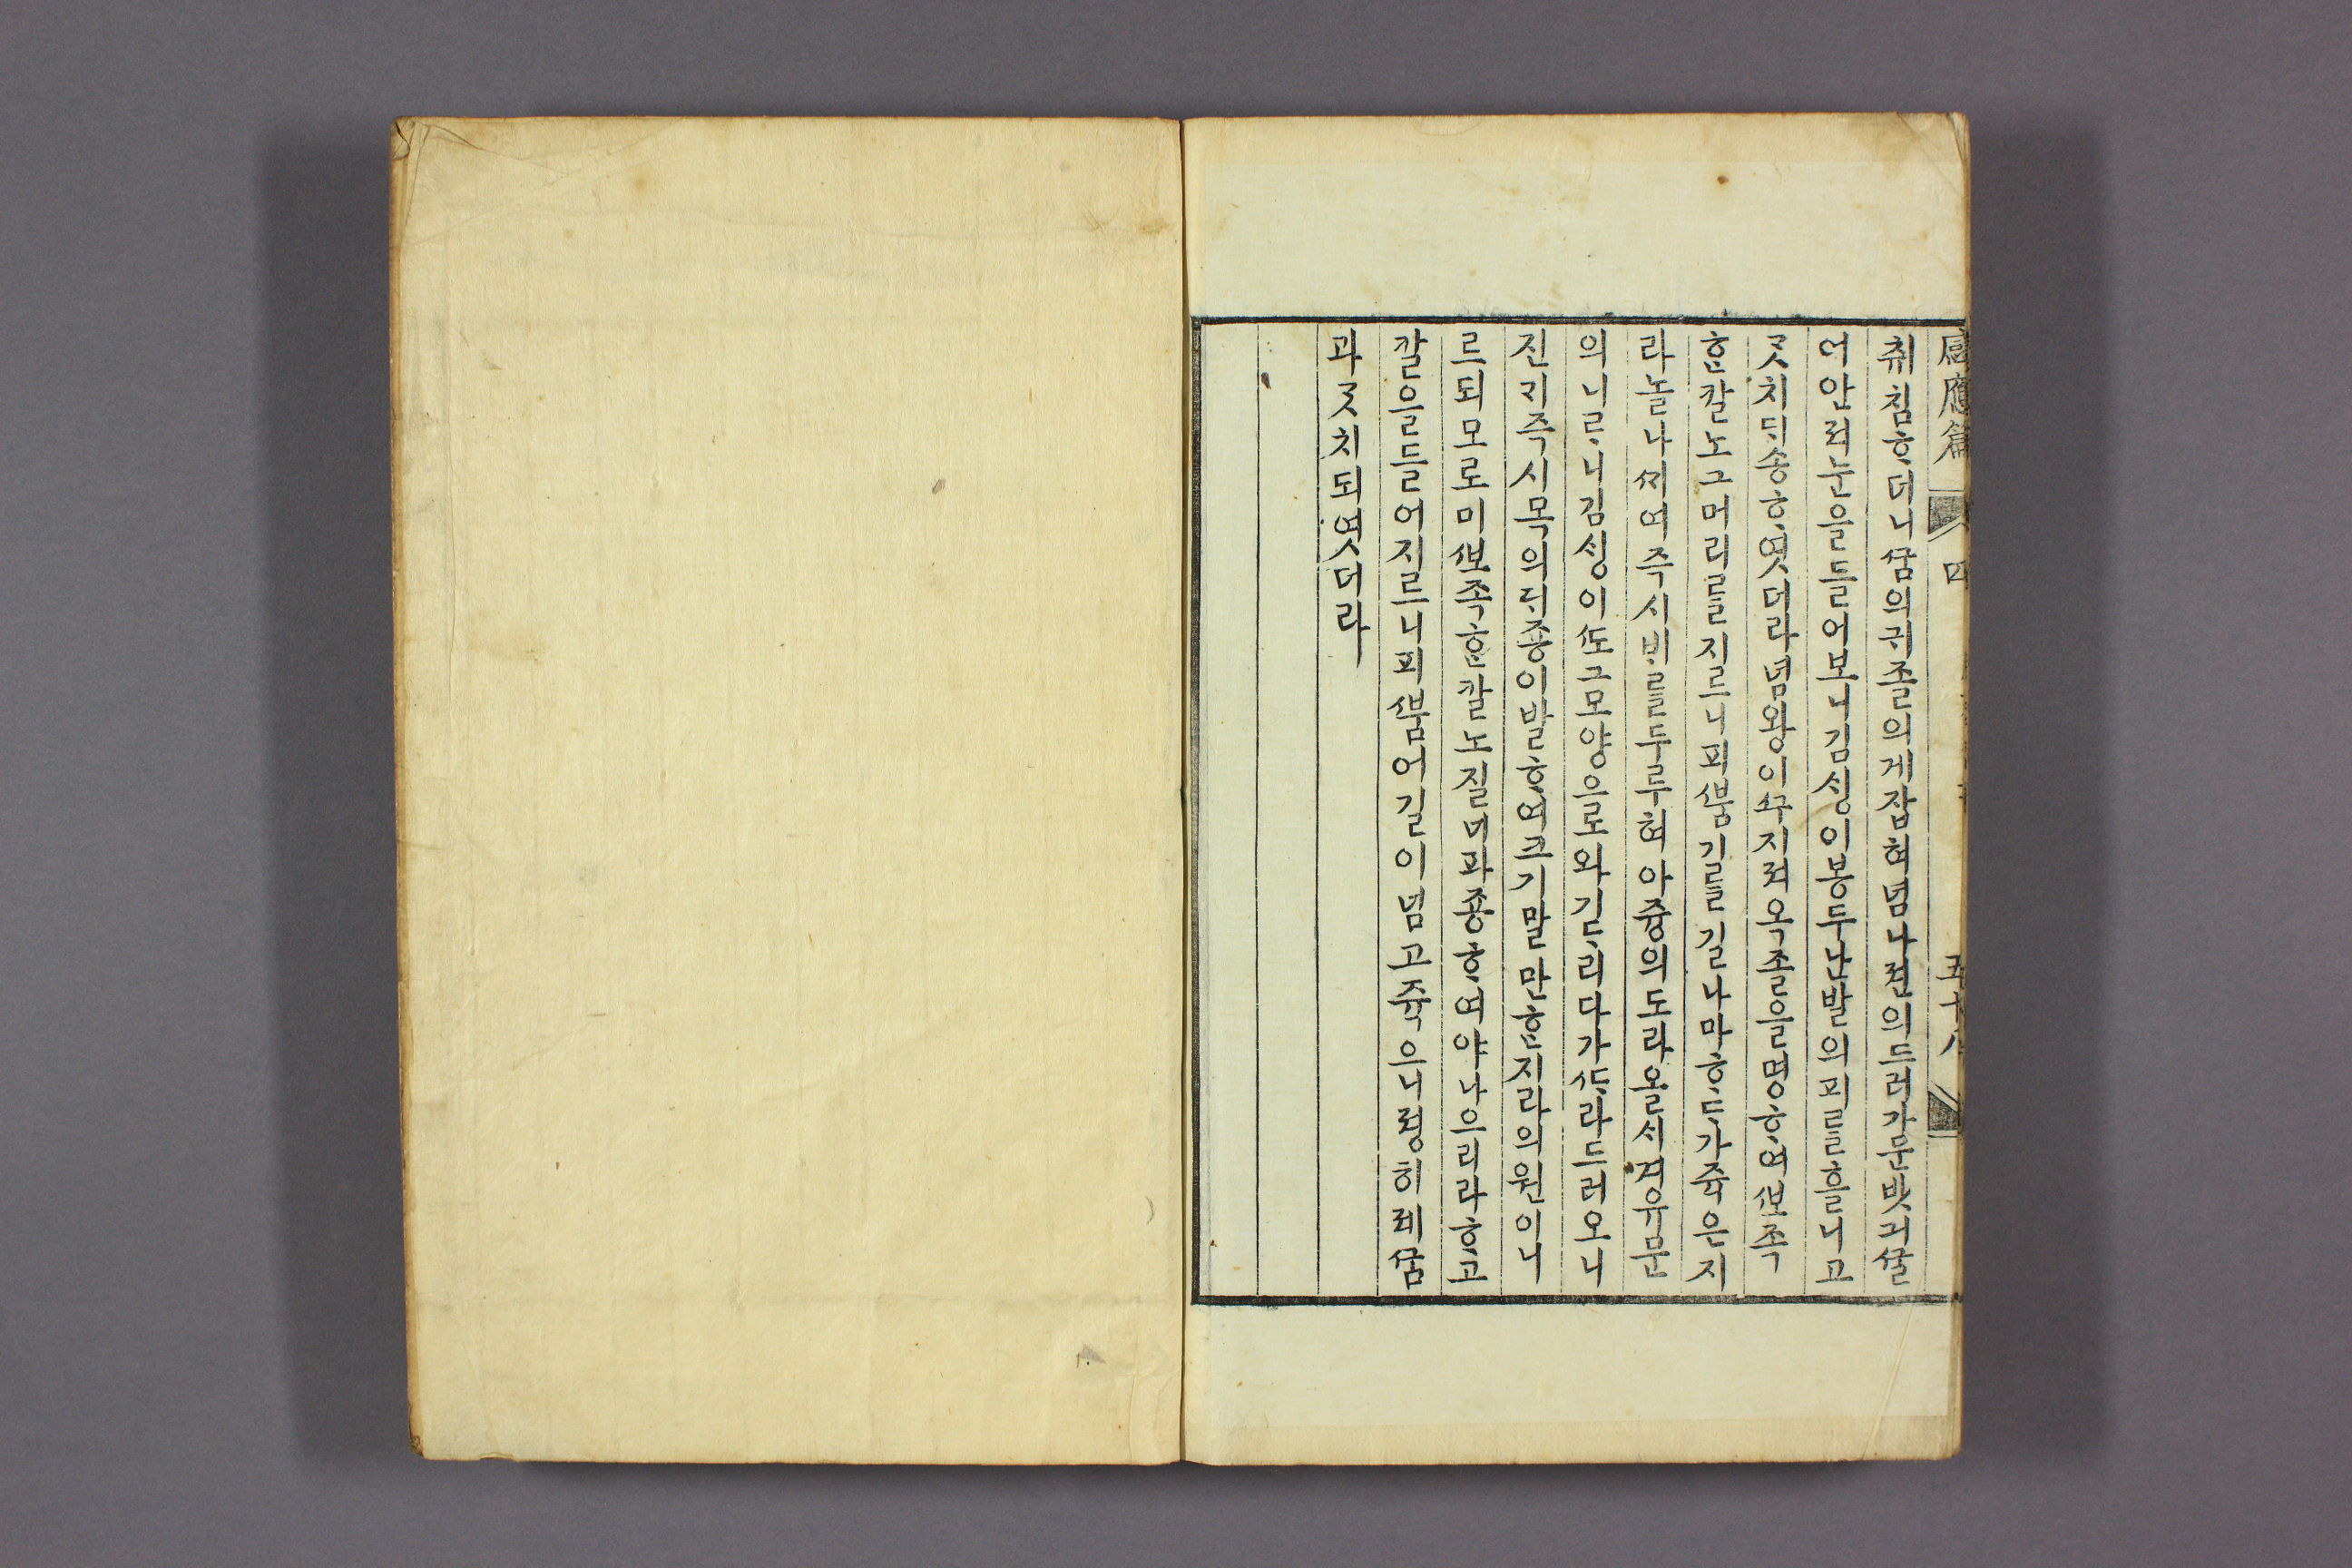 感應篇 四 五十八
취침ᄒᆞ더니 ᄭᅮᆷ의 귀졸의게 잡혀 뎜나젼의 드러가 문밧긔 ᄭᅮᆯ
어 안져 눈을 들어 보니 김ᄉᆡᆼ이 봉두난발의 피를 흘니고
ᄀᆞᆺ치 ᄃᆡ숑ᄒᆞ엿더라 뎜왕이 ᄭᅮ지져 옥졸을 명ᄒᆞ여 ᄲᅧ족
ᄒᆞᆫ 칼노 그 머리를 지르니 피 ᄲᅮᆷ기를 길나마 ᄒᆞ드가 쥭은지
라 놀나 ᄭᆡ여 즉시 비를 두루혀 아즁의 도라올ᄉᆡ 져유문
의 니르니 김ᄉᆡᆼ이 ᄯᅩ 그 모양으로 와 기ᄃᆞ리다가 ᄯᆞ라드러오니
진귀 즉시 목의 ᄃᆡ죵이 발ᄒᆞ여 크기 말만ᄒᆞᆫ지라 의원이 니
르되 모로미 ᄲᅧ족ᄒᆞᆫ 칼노 질너 파죵ᄒᆞ여야 나으리라 ᄒᆞ고
칼을 들어 지르니 피 ᄲᅮᆷ어 길이 넘고 쥭으니 졍히 졔 ᄭᅮᆷ
과 ᄀᆞᆺ치 되엿더라